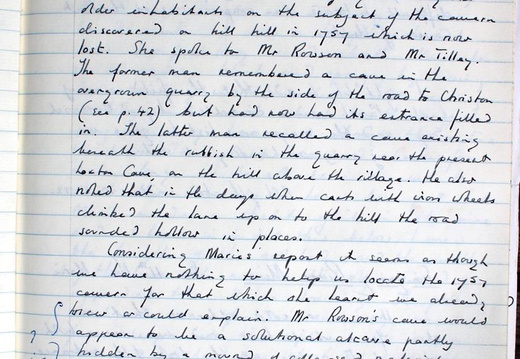 older inhabitants on the subject of the cavern
discovered on hill hill in 1757 which is now
lost. She spoke to Mr Rowson and Mr Tilley.
The former man remembered a cave in the
overgrown quarry by the side of the road to Christon
(See p. 42) but had now had its entrance filled
in. The latter man recalled a cave existing
beneath the rubbish in the quarry near the present
Loxton Cave, on the hill above the village. He also
noted that in the days when carts with iron wheels
climbed the lane up on to the hill the road
sounded hollow in places.
Considering Marie's report it seems as though
we have nothing to help us locate the 1757
cavern for that which she learnt we already
knew or could explain. Mr Rowson's cave would
appear to be a solutional alcove partly
hidden by a mound of